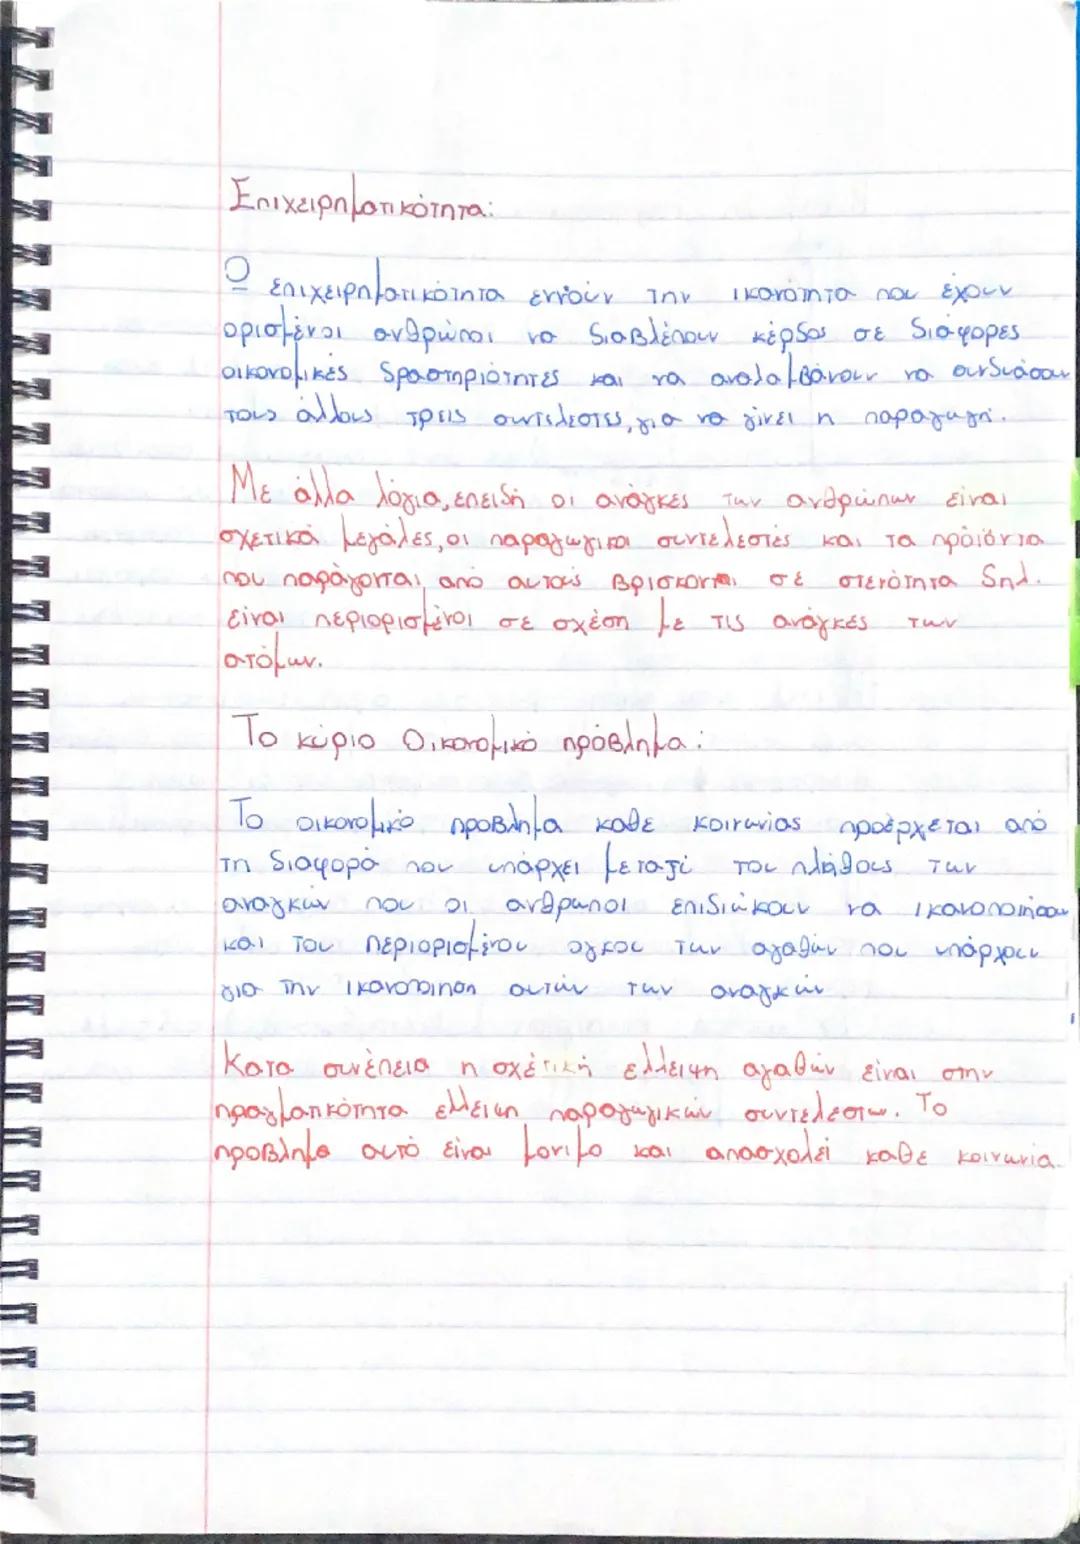 Επιχειρηματικότητα:
Ω επιχειρηματικότητα εννούν την ικανότητα που έχουν
ορισμένοι ανθρώποι να διαβλέπουν κέρδος σε διάφορες
οικονομικές δραστηριότητες και να αναλαμβάνουν να συνδυάσουν
τους άλλους τρεις συντελεστες, για να γίνει η παραγωγή.
Με άλλα λόγια, επειδή οι ανάγκες των ανθρώπων είναι
σχετικά μεγάλες, οι παραγωγικοι συντελεστές και τα προϊόντα
που παράγονται από αυτούς βρισκονται σε στενότητα δηλ.
είναι περιορισμένοι σε σχέση με τις ανάγκες των
ατόμων.
Το κύριο Οικονομικό πρόβλημα:
Το οικονομικό προβλημα καθε κοινωνίας προέρχεται από
τη διαφορά που υπάρχει μεταξύ του πλήθους των
αναγκών που οι ανθρωποι επιδιώκουν να ικανοποιήσουν
και του περιορισμένου ογκου των αγαθών που υπάρχουν
για την ικανοποιηση αυτών των αναγκών
Κατα συνέπεια η σχέτική ελλειψη αγαθών είναι στην
πραγματικότητα ελλειψη παραγωγικών συντελεστω. Το
προβλημα αυτό είναι μονιμο και απασχολεί καθε κοινωνία.